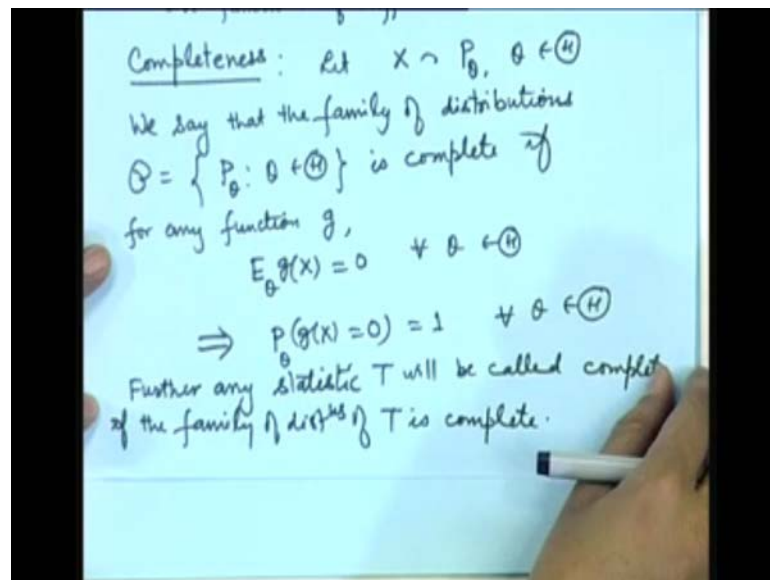 Completeness : Let X ~ P_θ, θ ∈ Ⓗ
We say that the family of distributions
𝒫 = { P_θ : θ ∈ Ⓗ } is complete if
for any function g,
E_θ g(X) = 0 ∀ θ ∈ Ⓗ
⇒ P_θ (g(X) = 0) = 1 ∀ θ ∈ Ⓗ
Further any statistic T will be called complet
if the family of distⁿˢ of T is complete.